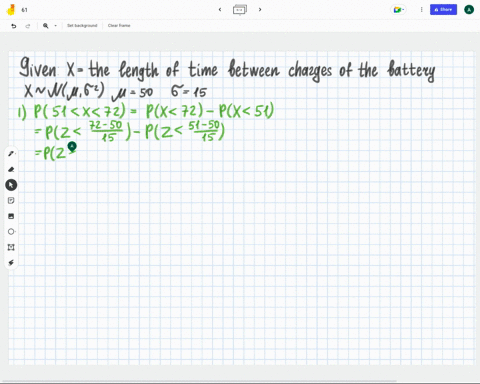 61
Share
A
Set background
Clear frame
Given X = the length of time between charges of the battery
X ~ N(μ, σ²) μ = 50 σ = 15
1) P(51 < X < 72) = P(X < 72) - P(X < 51)
= P(Z < (72-50)/15) - P(Z < (51-50)/15)
= P(Z
A